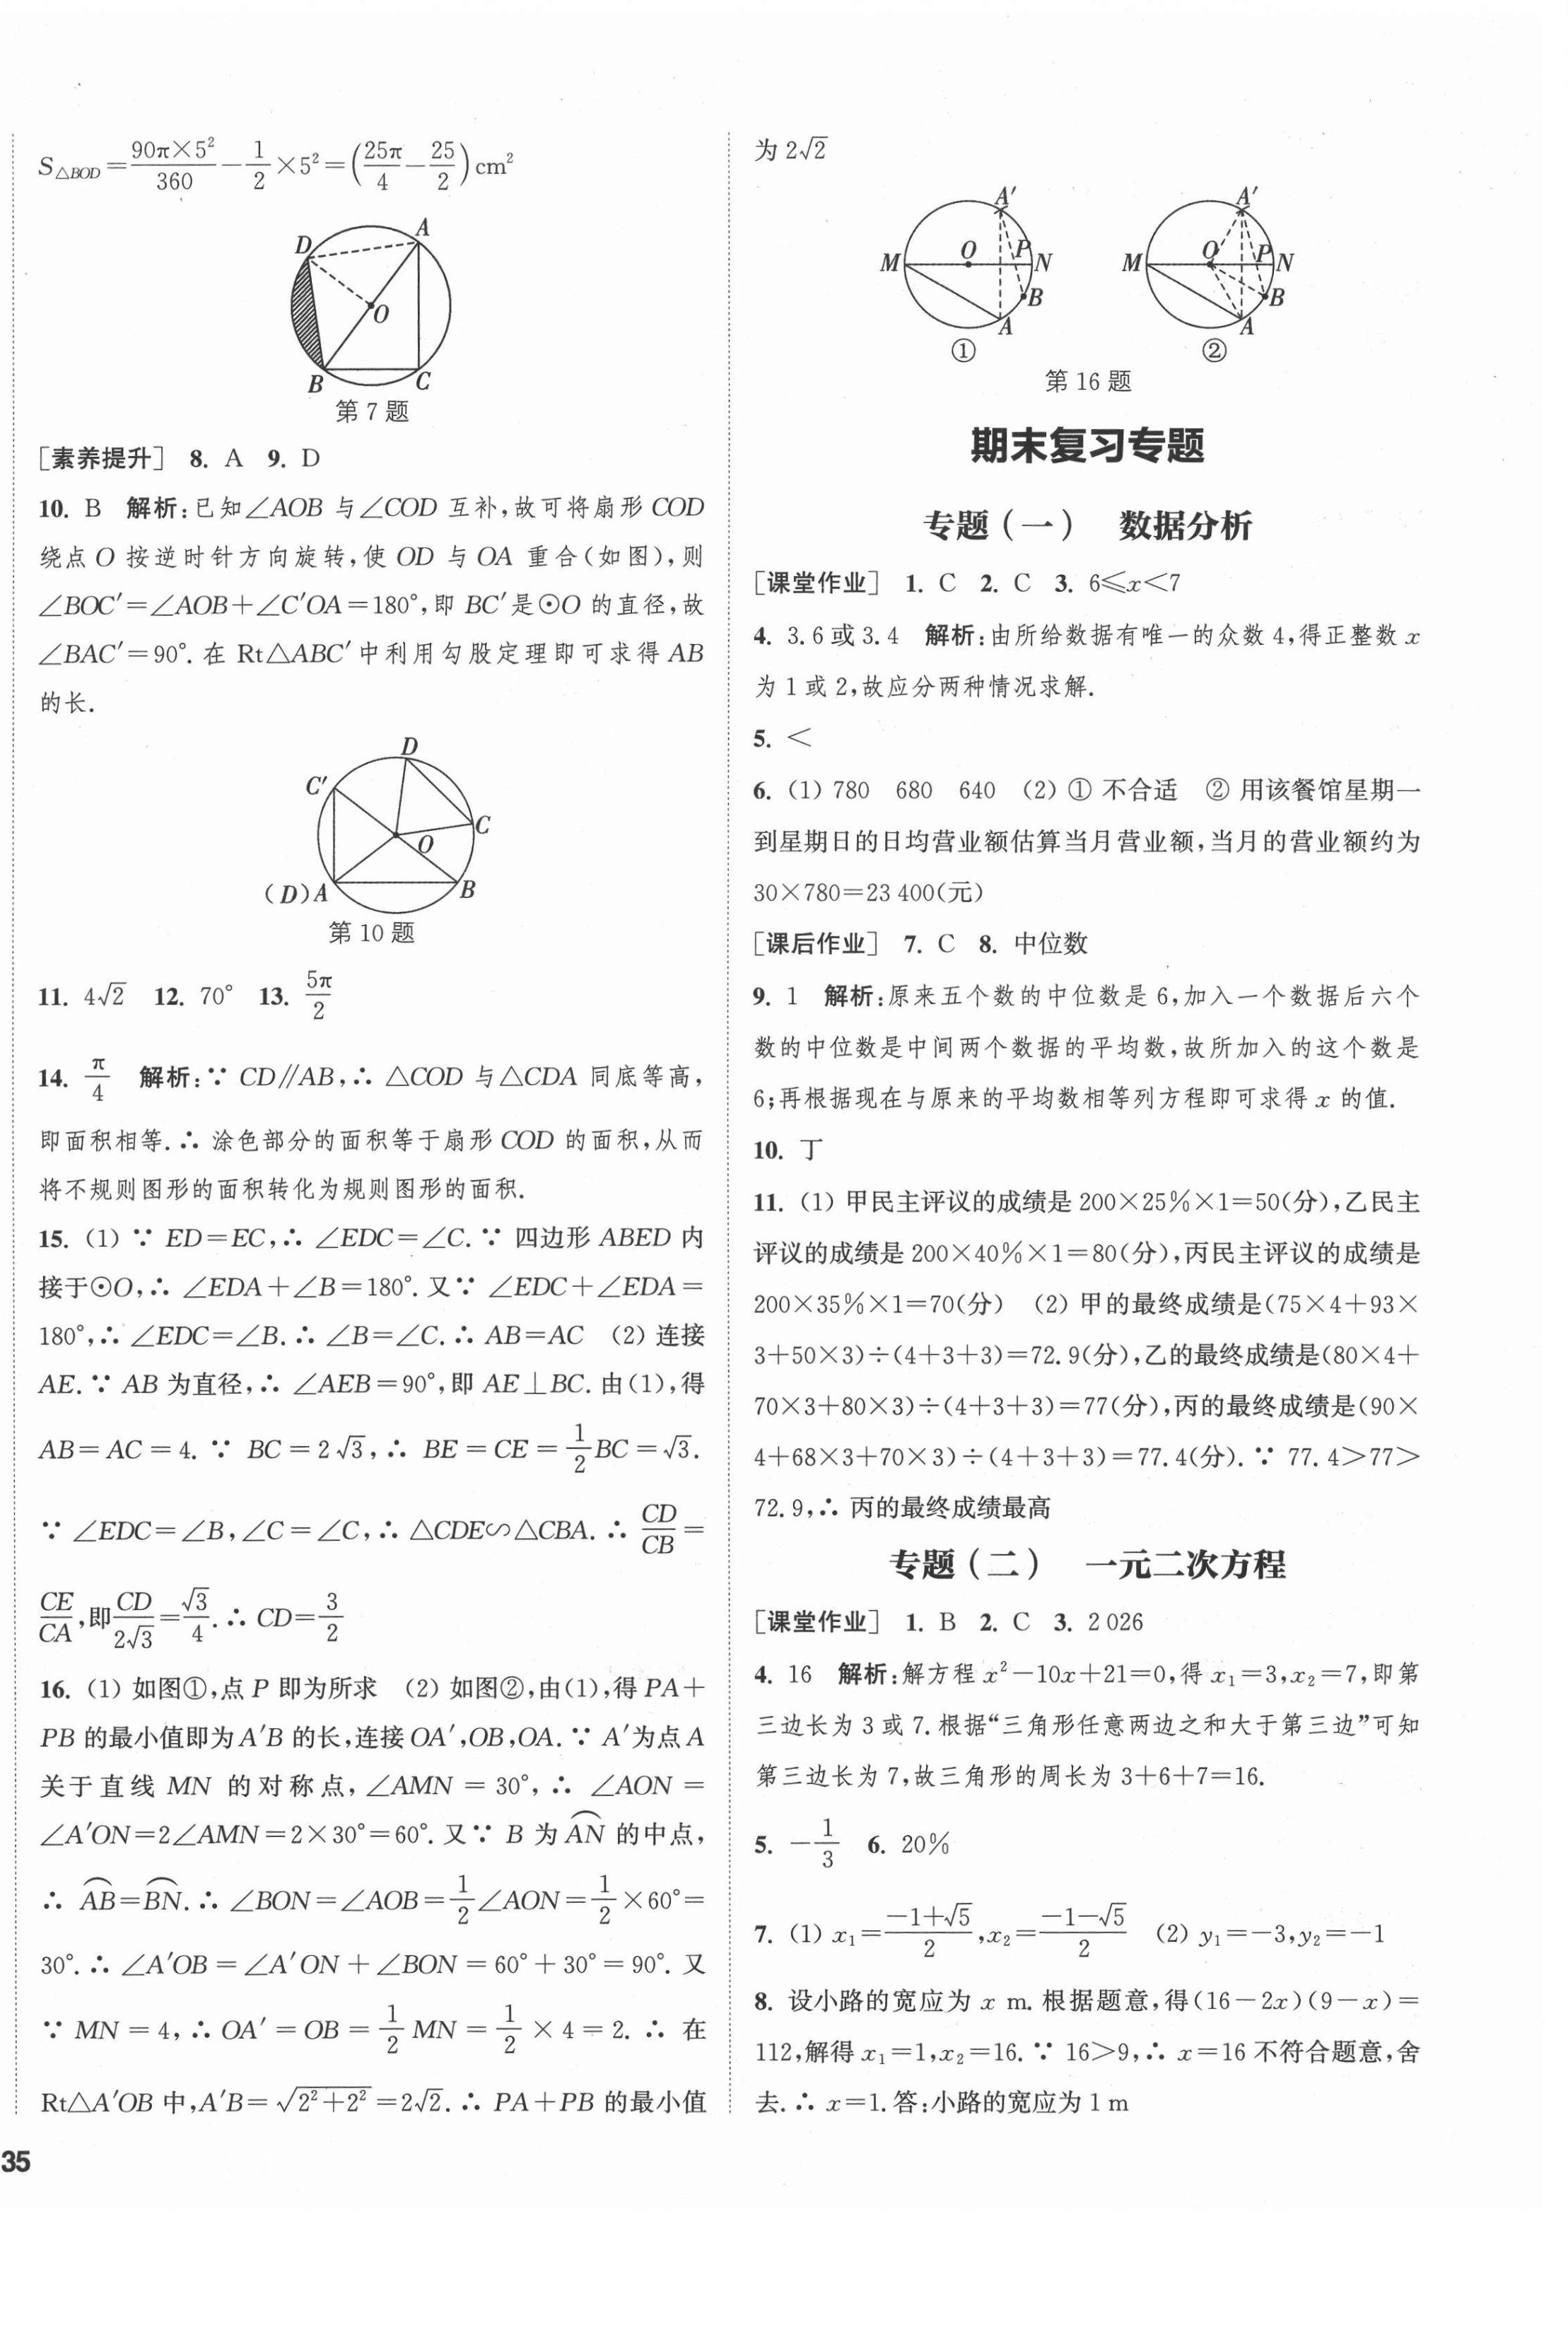 S△BOD=90π×5²/360−1/2×5²=(25π/4−25/2)cm²
D A O B C
第 7 题
[素养提升] 8. A 9. D
10. B 解析:已知∠AOB 与∠COD 互补,故可将扇形 COD
绕点 O 按逆时针方向旋转,使 OD 与 OA 重合(如图),则
∠BOC′=∠AOB+∠C′OA=180°,即 BC′是⊙O 的直径,故
∠BAC′=90°. 在 Rt△ABC′中利用勾股定理即可求得 AB
的长.
D C′ C O (D)A B
第 10 题
11. 4√2 12. 70° 13. 5π/2
14. π/4 解析:∵ CD∥AB,∴ △COD 与△CDA 同底等高,
即面积相等.∴ 涂色部分的面积等于扇形 COD 的面积,从而
将不规则图形的面积转化为规则图形的面积.
15. (1) ∵ ED=EC,∴ ∠EDC=∠C.∵ 四边形 ABED 内
接于⊙O,∴ ∠EDA+∠B=180°. 又∵ ∠EDC+∠EDA=
180°,∴ ∠EDC=∠B.∴ ∠B=∠C.∴ AB=AC (2) 连接
AE.∵ AB 为直径,∴ ∠AEB=90°,即 AE⊥BC. 由(1),得
AB=AC=4. ∵ BC=2√3,∴ BE=CE=1/2BC=√3.
∵ ∠EDC=∠B,∠C=∠C,∴ △CDE∽△CBA. ∴ CD/CB=
CE/CA,即CD/2√3=√3/4.∴ CD=3/2
16. (1) 如图①,点 P 即为所求 (2) 如图②,由(1),得 PA+
PB 的最小值即为 A′B 的长,连接 OA′,OB,OA.∵ A′为点 A
关于直线 MN 的对称点,∠AMN=30°,∴ ∠AON=
∠A′ON=2∠AMN=2×30°=60°. 又∵ B 为 A͡N 的中点,
∴ A͡B=B͡N.∴ ∠BON=∠AOB=1/2∠AON=1/2×60°=
30°.∴ ∠A′OB=∠A′ON+∠BON=60°+30°=90°. 又
∵ MN=4,∴ OA′=OB=1/2 MN=1/2×4=2.∴ 在
Rt△A′OB 中,A′B=√(2²+2²)=2√2.∴ PA+PB 的最小值
35
为 2√2
A′ M O P N B A
①
A′ M O P N B A
②
第 16 题
期末复习专题
专题(一) 数据分析
[课堂作业] 1. C 2. C 3. 6≤x<7
4. 3.6 或 3.4 解析:由所给数据有唯一的众数 4,得正整数 x
为 1 或 2,故应分两种情况求解.
5. <
6. (1) 780 680 640 (2) ① 不合适 ② 用该餐馆星期一
到星期日的日均营业额估算当月营业额,当月的营业额约为
30×780=23 400(元)
[课后作业] 7. C 8. 中位数
9. 1 解析:原来五个数的中位数是 6,加入一个数据后六个
数的中位数是中间两个数据的平均数,故所加入的这个数是
6;再根据现在与原来的平均数相等列方程即可求得 x 的值.
10. 丁
11. (1) 甲民主评议的成绩是 200×25%×1=50(分),乙民主
评议的成绩是 200×40%×1=80(分),丙民主评议的成绩是
200×35%×1=70(分) (2) 甲的最终成绩是(75×4+93×
3+50×3)÷(4+3+3)=72.9(分),乙的最终成绩是(80×4+
70×3+80×3)÷(4+3+3)=77(分),丙的最终成绩是(90×
4+68×3+70×3)÷(4+3+3)=77.4(分).∵ 77.4>77>
72.9,∴ 丙的最终成绩最高
专题(二) 一元二次方程
[课堂作业] 1. B 2. C 3. 2 026
4. 16 解析:解方程 x²−10x+21=0,得 x₁=3,x₂=7,即第
三边长为 3 或 7. 根据“三角形任意两边之和大于第三边”可知
第三边长为 7,故三角形的周长为 3+6+7=16.
5. −1/3 6. 20%
7. (1) x₁=(−1+√5)/2,x₂=(−1−√5)/2 (2) y₁=−3,y₂=−1
8. 设小路的宽应为 x m. 根据题意,得(16−2x)(9−x)=
112,解得 x₁=1,x₂=16.∵ 16>9,∴ x=16 不符合题意,舍
去.∴ x=1. 答:小路的宽应为 1 m